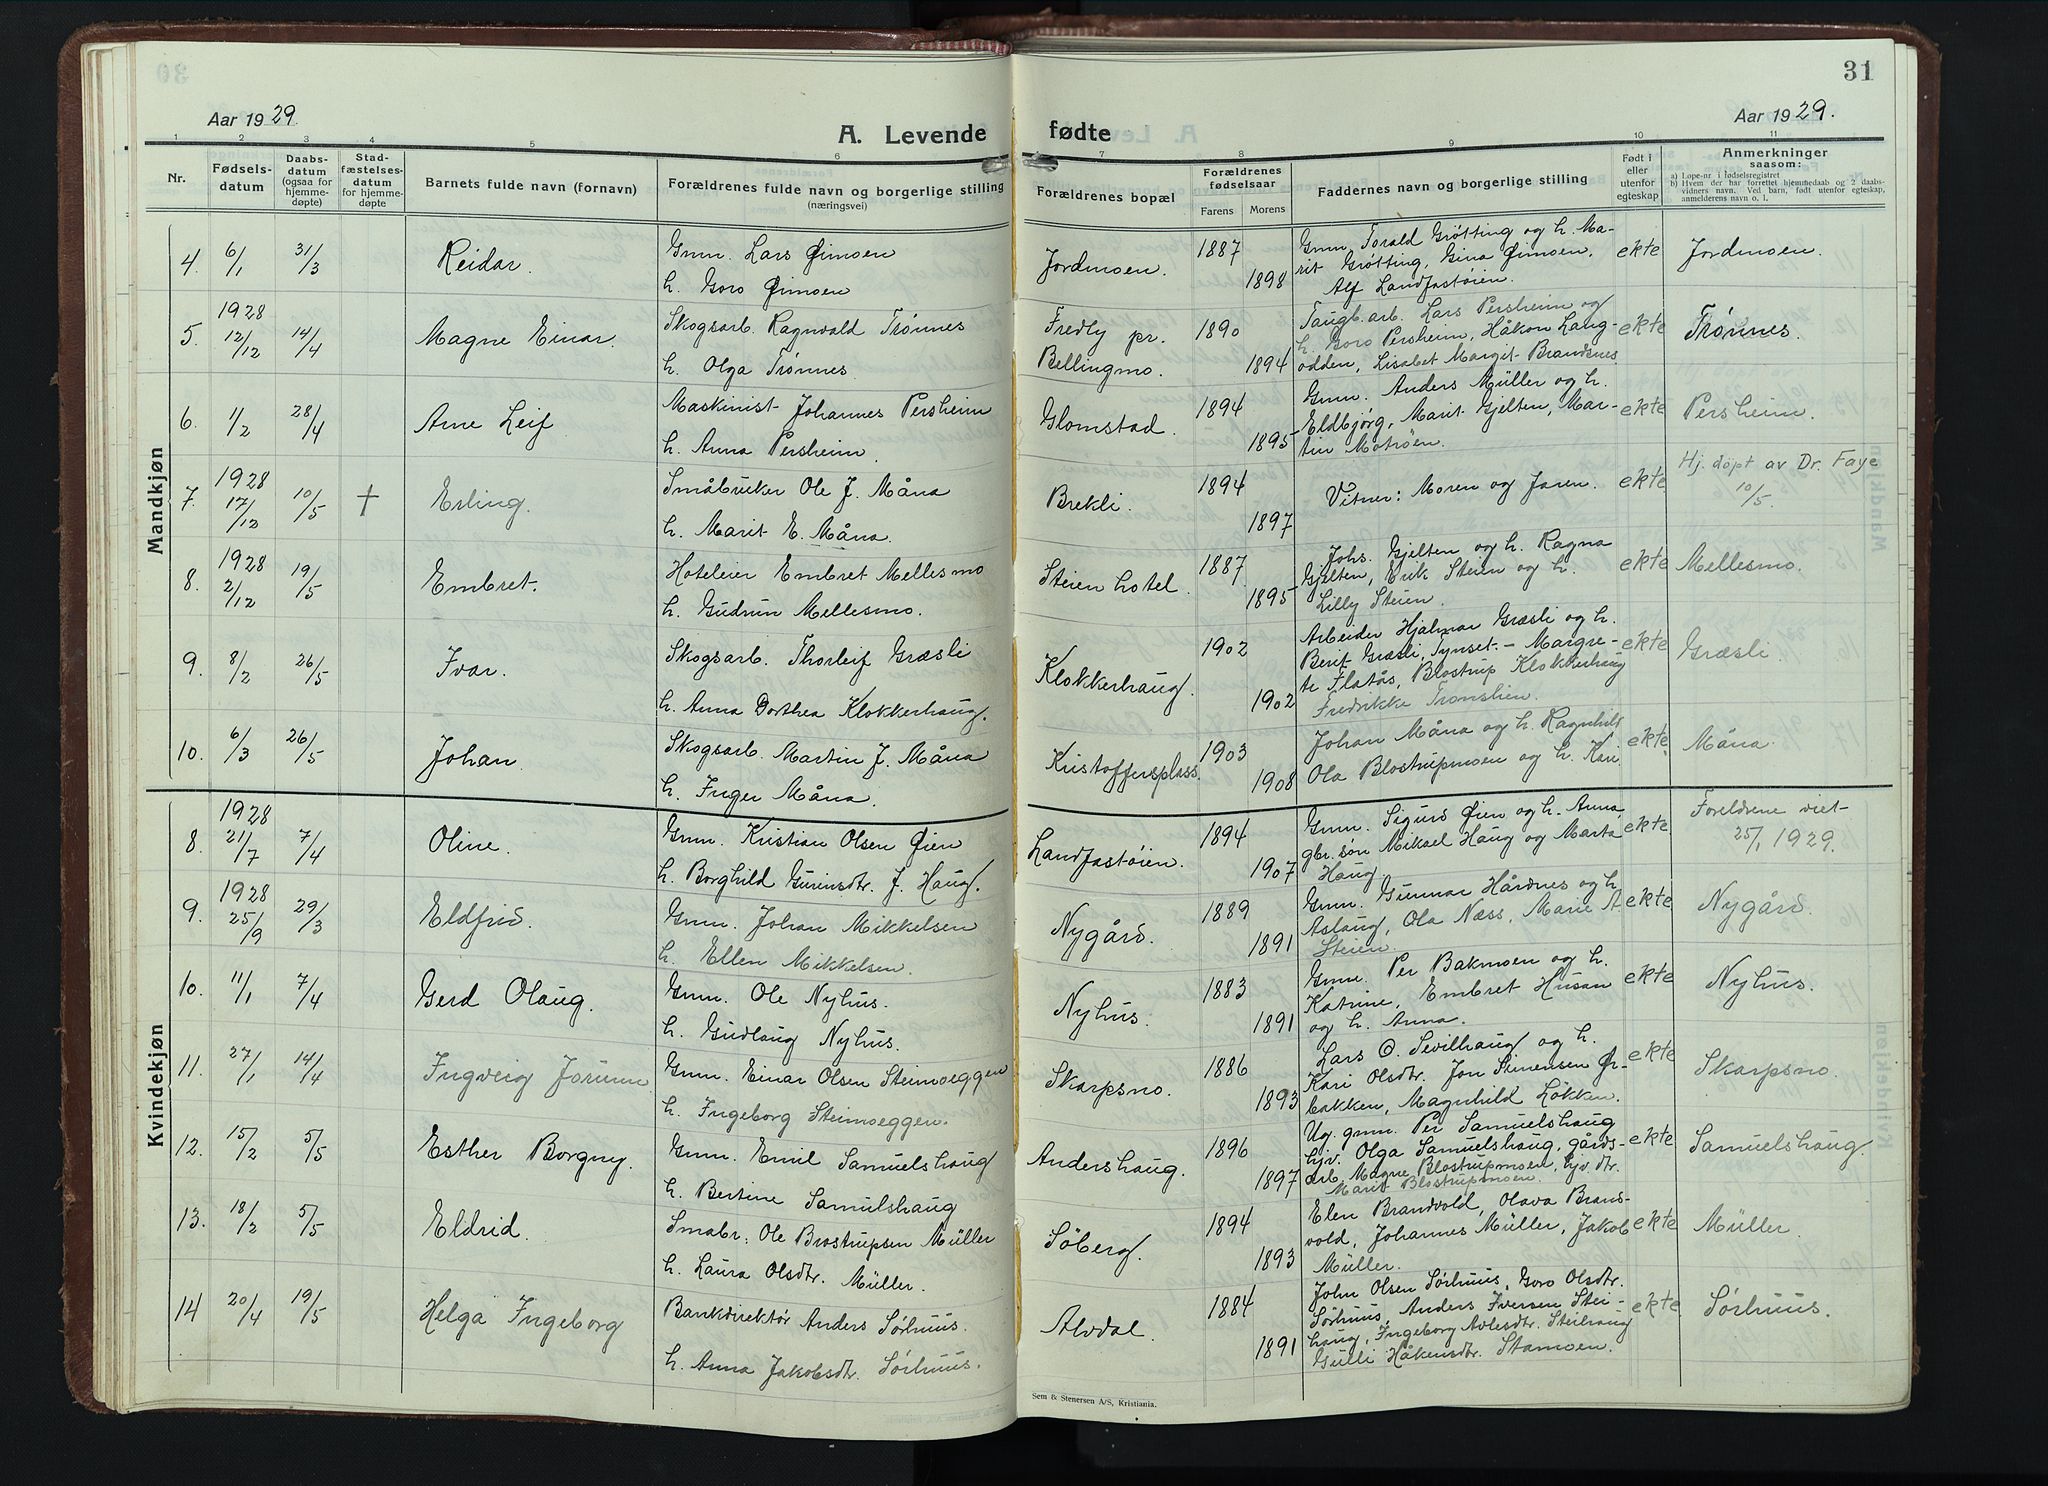 31
Aar 1929.
Aar 1929.
A. Levende fødte
1 2 3 4 5 6 7 8 9 10 11
Nr.
Fødselsdatum
Daabsdatum (ogsaa for hjemmedøpte)
Stadfæstelsesdatum for hjemmedøpte
Barnets fulde navn (fornavn)
Forældrenes fulde navn og borgerlige stilling
(næringsvei)
Forældrenes bopæl
Forældrenes fødselsaar
Farens
Morens
Faddernes navn og borgerlige stilling
Født i eller utenfor egteskap
Anmerkninger
saasom:
a) Løpe-nr i fødselsregistret
b) Hvem der har forrettet hjemmedaab og 2 daabsvidners navn. Ved barn, født utenfor egteskap, anmelderens navn o. l.
Mandkjøn
4. 6/1 31/3 Reidar.
Gmn. Lars Øimoen
h. Goro Øimoen
Jordmoen.
1887
1898
Gmn. Torald Grøtting og h. Ma-
rit Grøtting, Gina Øimoen.
Alf Landfastøien.
ekte
Jordmoen.
5. 1928 12/12 14/4 Magne Einar.
Skogsarb. Ragnvald Trønnes
h. Olga Trønnes.
Fredly pr.
Bellingmo.
1890
1894
Taugb. arb. Lars Persheim og
h. Goro Persheim, Håkon Laug-
odden, Lisabet Margit Brandsnes
ekte
Trønnes.
6. 1/2 28/4 Arne Leif
Maskinist Johannes Persheim
h. Anna Persheim.
Glomstad.
1894
1895
Gmn. Anders Müller og h.
Eldbjörg, Marit Gjelten, Mar-
tin Motrøen.
ekte
Persheim.
7. 1928 17/12 10/5 † Erling.
Småbruker Ole J. Måna
h. Marit E. Måna.
Brekli.
1894
1897
Vitner: Moren og Faren.
ekte
Hj. døpt av Dr. Faye
10/5.
8. 1928 2/12 19/5 Embret.
Hoteleier Embret Mellesmo
h. Gudrun Mellesmo.
Steien hotel.
1887
1895
Johs. Gjelten og h. Ragna
Gjelten, Erik Steien og h.
Lilly Steien.
ekte
Mellesmo.
9. 8/2 26/5 Ivar.
Skogsarb. Thorleif Græsli
h. Anna Dorthea Klokkerhaug.
Klokkerhaug.
1902
1902
Arbeider Hjalmar Græsli og h.
Berit Græsli, Tynset. - Margre-
te Flatås, Blostrup Klokkerhaug
Fredrikke Tronslien.
ekte
Græsli.
10. 6/3 26/5 Johan.
Skogsarb. Martin J. Måna
h. Inger Måna.
Kristoffersplass.
1903
1908
Johan Måna og h. Ragnhild
Ola Blostrupmoen og h. Kari.
ekte.
Måna.
Kvindekjøn
8. 1928 21/7 7/4 Oline.
Gmn. Kristian Olsen Øien
h. Borghild Gurinsdtr. f. Haug.
Landfastøien.
1894
1907
Gmn. Sigurd Øien og h. Anna,
gbr. søn Mikael Haug og Marta
Haug.
ekte
Foreldrene viet
25/1 1929.
9. 1928 25/9 29/3 Eldfrid.
Gmn. Johan Mikkelsen
h. Ellen Mikkelsen.
Nygård.
1889
1891
Gmn. Gunnar Hårdnes og h.
Aslaug, Ola Næss, Marie A.
Steien.
ekte
Nygård.
10. 11/1 7/4 Gerd Olaug.
Gmn. Ole Nyhus.
h. Gudlaug Nyhus.
Nyhus.
1883
1891
Gmn. Per Bakmoen og h.
Katrine, Embret Husan
og h. Anna.
ekte
Nyhus.
11. 27/1 14/4 Ingveig Jorunn
Gmn. Einar Olsen Steimoeggen
h. Ingeborg Steimoeggen.
Skarpsno.
1886
1893
Lars O. Sevilhaug og h.
Kari Olsdtr. Jon Simensen Ør-
bakken, Magnhild Løkken.
ekte
Skarpsno.
12. 15/2 5/5 Esther Borgny.
Gmn. Emil Samuelshaug
h. Bertine Samulshaug
Andershaug.
1896
1897
Ug. gmn. Per Samuelshaug
hjv. Olga Samuelshaug, gårds-
arb. Magne Blostrupmoen, hjv. dtr.
Marit Blostrupmoen.
ekte
Samuelshaug.
13. 18/2 5/5 Eldrid.
Småbr. Ole Brostrupsen Müller
h. Laura Olsdtr. Müller.
Søberg.
1894
1893
Elen Brandvold, Olava Brand-
vold, Johannes Müller, Jakob
Müller.
ekte
Müller.
14 20/4 19/5 Helga Ingeborg
Bankdirektør Anders Sørhuus.
h. Anna Jakobsdtr. Sørhuus.
Alvdal.
1884
1891
John Olsen Sørhuus, Goro Olsdtr.
Sørhuus, Anders Iversen Stei-
haug, Ingeborg Avlesdtr. Steihaug
Gulli Håkensdtr. Stamoen.
ekte
Sørhuus.
Sem & Stenersen A/S, Kristiania.